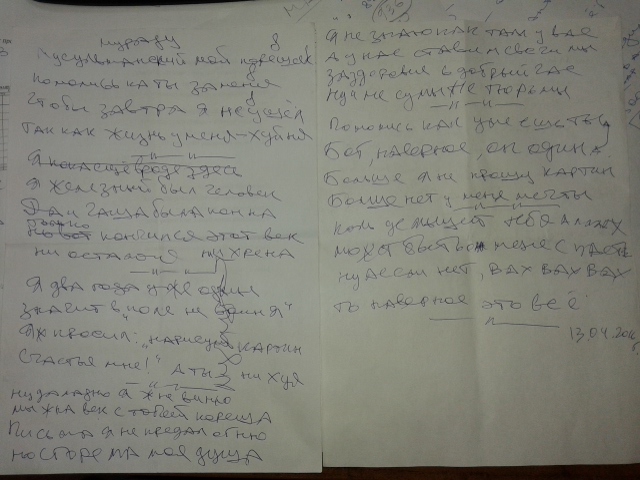 Мурату
Мусульманский мой корешок
помолись ка ты за меня
Чтобы завтра я не ушёл
Так как жизнь у меня - хуйня
Я пока ещё вроде здесь
Я железный был человек
Да и чаша была полна
только
кончился этот век
ни осталося ни хрена
Я два года уже один
значит в поле не воин я"
Я ж просил: "нарисуй картин
Счастья мне!" А ты ни хуя
ну да ладно я ж не виню
мы ж на век с тобой кореша
Письма я не предал огню
но сгорела моя душа
Я не знаю как там у вас
А у нас ставим свечи мы
За здоровье в добрый час
Ну а не сумы не тюрьмы
Помолись как умеешь ты
Бог, наверное, он один
Больше я не прошу картин
Больше нет у меня мечты
коль услышит тебя Аллах
может быть и меня спасёт
ну а если нет, вах вах вах
то наверное это всё
13.04.201